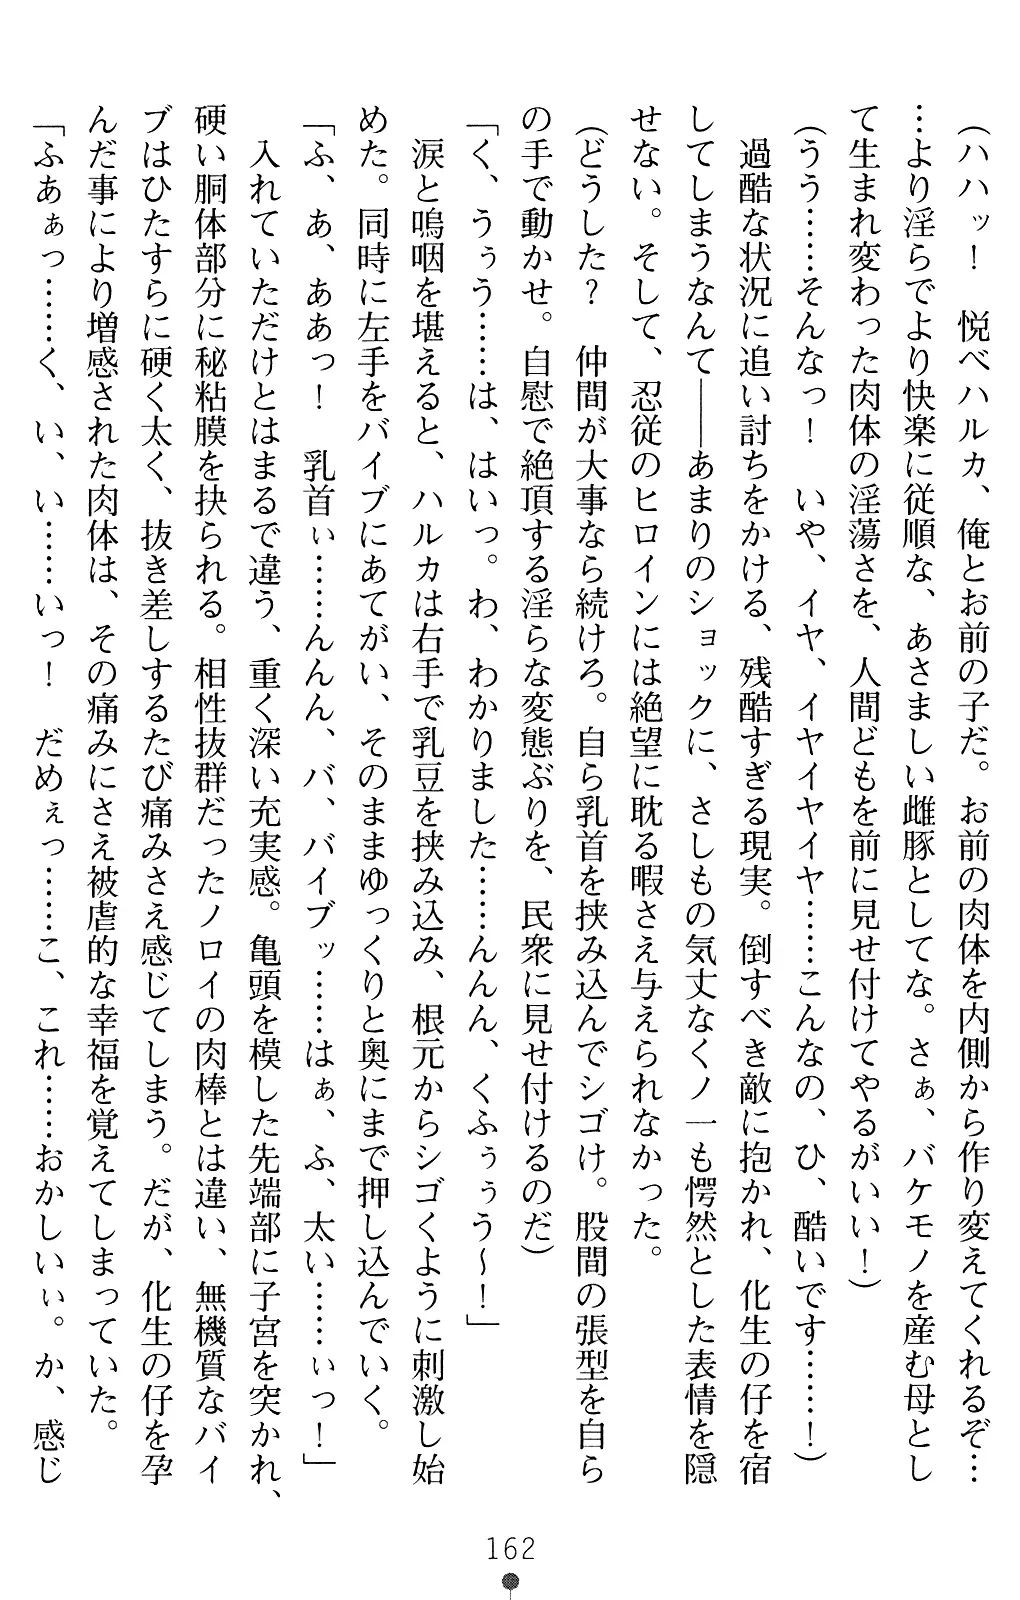 （ハハッ！　悦べハルカ、俺とお前の子だ。お前の肉体を内側から作り変えてくれるぞ…
…より淫らでより快楽に従順な、あさましい雌豚としてな。さぁ、バケモノを産む母とし
て生まれ変わった肉体の淫蕩さを、人間どもを前に見せ付けてやるがいい！）
（うう……そんなっ！　いや、イヤ、イヤイヤイヤ……こんなの、ひ、酷いです……！）
　過酷な状況に追い討ちをかける、残酷すぎる現実。倒すべき敵に抱かれ、化生の仔を宿
してしまうなんて――あまりのショックに、さしもの気丈なくノ一も愕然とした表情を隠
せない。そして、忍従のヒロインには絶望に耽る暇さえ与えられなかった。
（どうした？　仲間が大事なら続けろ。自ら乳首を挟み込んでシゴけ。股間の張型を自ら
の手で動かせ。自慰で絶頂する淫らな変態ぶりを、民衆に見せ付けるのだ）
「く、うぅう……は、はいっ。わ、わかりました……んんん、くふぅぅう～！」
　涙と嗚咽を堪えると、ハルカは右手で乳豆を挟み込み、根元からシゴくように刺激し始
めた。同時に左手をバイブにあてがい、そのままゆっくりと奥にまで押し込んでいく。
「ふ、あ、ああっ！　乳首ぃ……んんん、バ、バイブッ……はぁ、ふ、太い……ぃっ！」
　入れていただけとはまるで違う、重く深い充実感。亀頭を模した先端部に子宮を突かれ、
硬い胴体部分に秘粘膜を抉られる。相性抜群だったノロイの肉棒とは違い、無機質なバイ
ブはひたすらに硬く太く、抜き差しするたび痛みさえ感じてしまう。だが、化生の仔を孕
んだ事により増感された肉体は、その痛みにさえ被虐的な幸福を覚えてしまっていた。
「ふあぁっ……く、い、い……いっ！　だめぇっ……こ、これ……おかしいぃ。か、感じ
162